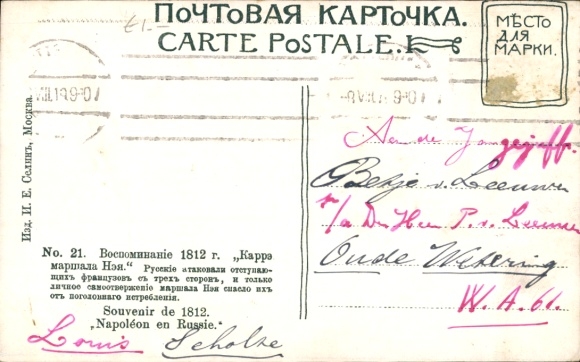 ПОЧТОВАЯ КАРТОЧКА.
CARTE POSTALE.
МѢСТО
ДЛЯ
МАРКИ.
Изд. И. Е. Селинъ, Москва.
No. 21. Воспоминаніе 1812 г. „Каррэ
маршала Нэя.“ Русскіе атаковали отступаю-
щихъ французовъ съ трехъ сторонъ, и только
личное самоотверженіе маршала Нэя спасло ихъ
отъ поголовнаго истребленія.
Souvenir de 1812.
„Napoléon en Russie.“
Louis Scholze
Aan de Jongejuff.
Betje v. Leeuwen
p/a Den Heer P. v. Leeuwen
Oude Wetering
W. A. 61.